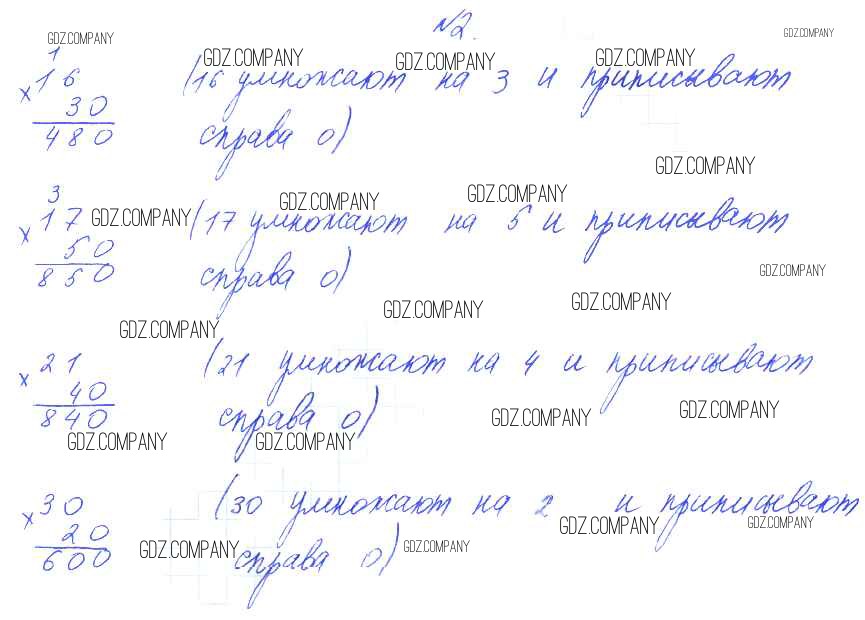 №2.
GDZ.COMPANY GDZ.COMPANY GDZ.COMPANY GDZ.COMPANY GDZ.COMPANY
1
× 16 (16 умножают на 3 и приписывают
30
480 справа 0)
GDZ.COMPANY
3 GDZ.COMPANY GDZ.COMPANY
× 17 GDZ.COMPANY (17 умножают на 5 и приписывают
50
850 справа 0)
GDZ.COMPANY
GDZ.COMPANY GDZ.COMPANY GDZ.COMPANY
× 21 (21 умножают на 4 и приписывают
40
840 справа 0)
GDZ.COMPANY GDZ.COMPANY
GDZ.COMPANY GDZ.COMPANY
× 30 (30 умножают на 2 и приписывают
20 GDZ.COMPANY GDZ.COMPANY
600 GDZ.COMPANY справа 0) GDZ.COMPANY